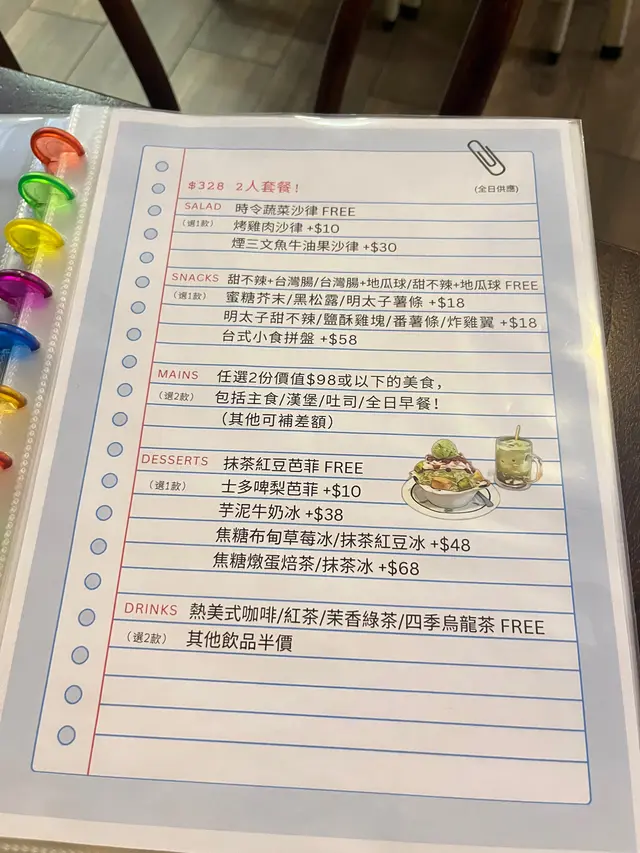 $328 2人套餐!
(全日供應)
SALAD 時令蔬菜沙律 FREE
(選1款) 烤雞肉沙律 +$10
煙三文魚牛油果沙律 +$30
SNACKS 甜不辣+台灣腸/台灣腸+地瓜球/甜不辣+地瓜球 FREE
(選1款) 蜜糖芥末/黑松露/明太子薯條 +$18
明太子甜不辣/鹽酥雞塊/番薯條/炸雞翼 +$18
台式小食拼盤 +$58
MAINS 任選2份價值$98或以下的美食,
(選2款) 包括主食/漢堡/吐司/全日早餐!
(其他可補差額)
DESSERTS 抹茶紅豆芭菲 FREE
(選1款) 士多啤梨芭菲 +$10
芋泥牛奶冰 +$38
焦糖布甸草莓冰/抹茶紅豆冰 +$48
焦糖燉蛋焙茶/抹茶冰 +$68
DRINKS 熱美式咖啡/紅茶/茉香綠茶/四季烏龍茶 FREE
(選2款) 其他飲品半價